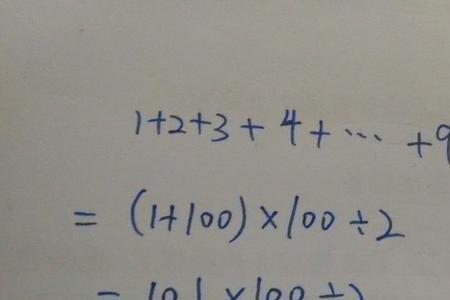 1+2+3+4+…+9
=(1+100)×100÷2
=101×100÷2